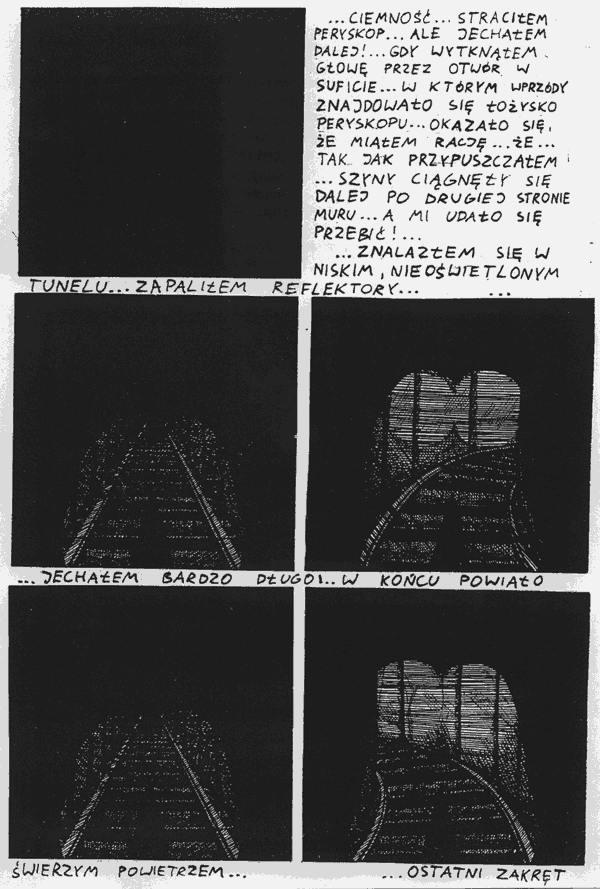 ...CIEMNOŚĆ... STRACIŁEM
PERYSKOP... ALE JECHAŁEM
DALEJ!... GDY WYTKNĄŁEM
GŁOWĘ PRZEZ OTWÓR W
SUFICIE... W KTÓRYM WPRZÓDY
ZNAJDOWAŁO SIĘ ŁOŻYSKO
PERYSKOPU... OKAZAŁO SIĘ,
ŻE MIAŁEM RACJĘ... ŻE...
TAK JAK PRZYPUSZCZAŁEM
...SZYNY CIĄGNĘŁY SIĘ
DALEJ PO DRUGIEJ STRONIE
MURU... A MI UDAŁO SIĘ
PRZEBIĆ!...
...ZNALAZŁEM SIĘ W
NISKIM, NIEOŚWIETLONYM
TUNELU... ZAPALIŁEM REFLEKTORY... ...
...JECHAŁEM BARDZO DŁUGO!.. W KOŃCU POWIAŁO
ŚWIERZYM POWIETRZEM... ...OSTATNI ZAKRĘT